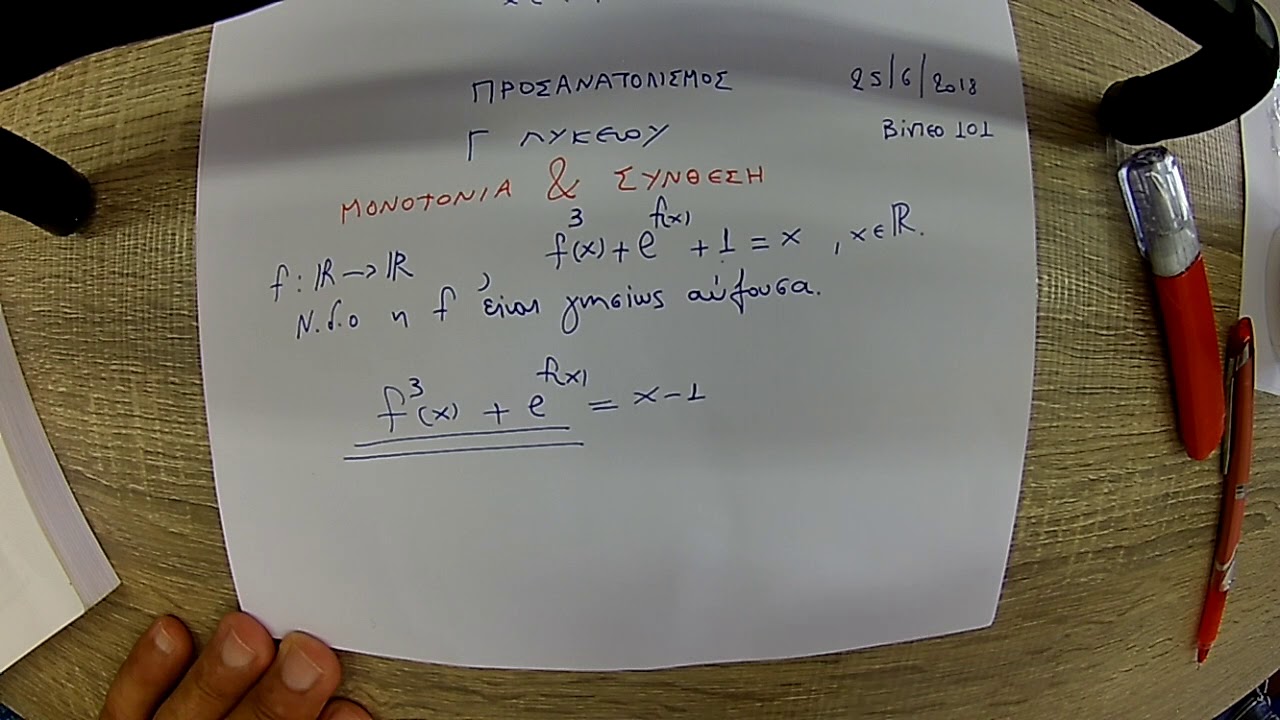 ΠΡΟΣΑΝΑΤΟΛΙΣΜΟΣ 25/6/2018
Γ ΛΥΚΕΙΟΥ Βίντεο 101
ΜΟΝΟΤΟΝΙΑ & ΣΥΝΘΕΣΗ
f: ℝ → ℝ, f³(x) + e^f(x) + 1 = x, x ∈ ℝ.
Ν.δ.ο η f είναι γνησίως αύξουσα.
f³(x) + e^f(x) = x - 1